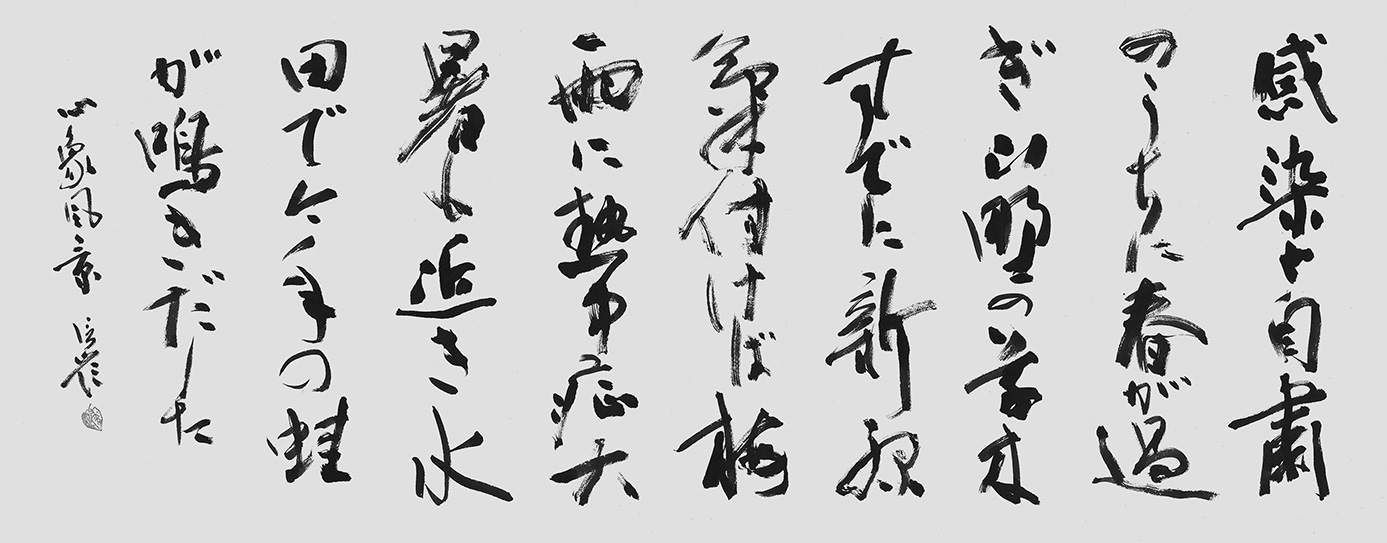 感染と自粛
のうちに春が過
ぎ山野の草木
すでに新緑
氣付けば梅
雨に熱中症大
暑も近き水
田で今年の蛙
が鳴きだした
心象風景